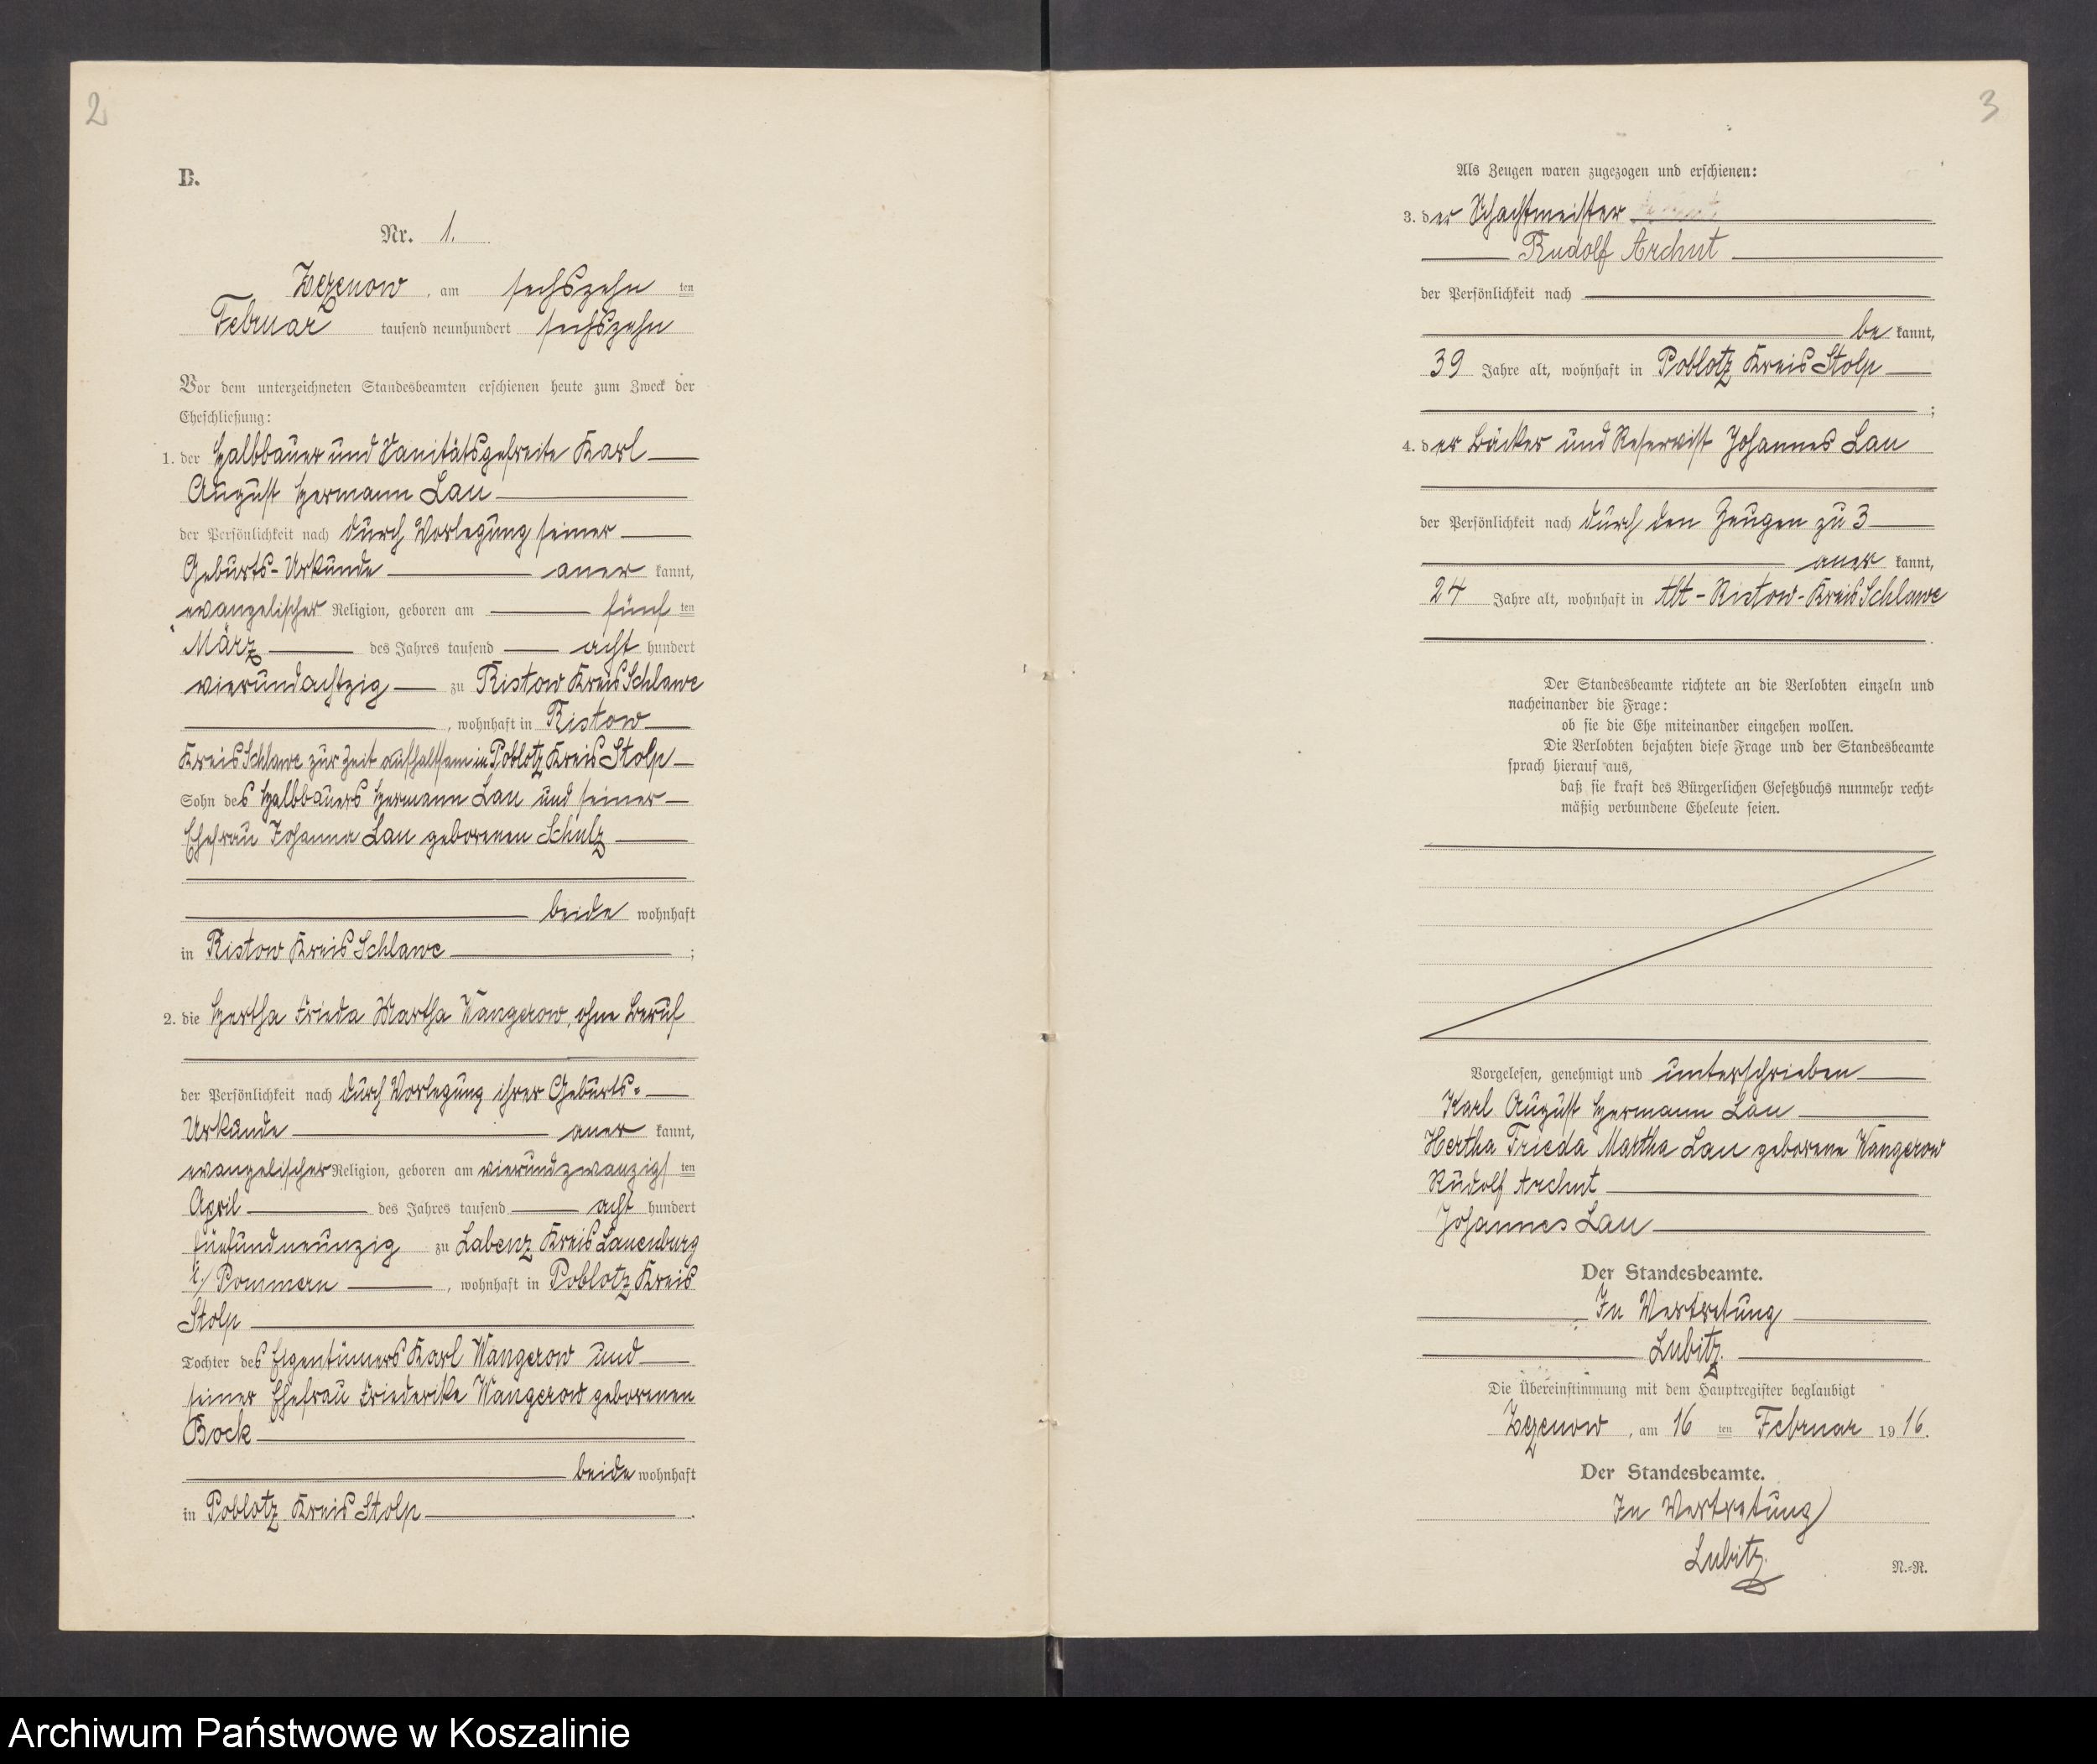 2
B.
Nr. 1.
Zezenow, am sechszehn ten
Februar tausend neunhundert sechszehn
Vor dem unterzeichneten Standesbeamten erschienen heute zum Zweck der
Eheschließung:
1. der Halbbauer und Sanitätsgefreite Karl
August Hermann Lau
der Persönlichkeit nach durch Vorlegung seiner
Geburts-Urkunde aner kannt,
evangelischer Religion, geboren am fünf ten
März des Jahres tausend acht hundert
vierundachtzig zu Ristow Kreis Schlawe
, wohnhaft in Ristow
Kreis Schlawe zur Zeit aufhaltsam in Poblotz Kreis Stolp
Sohn des Halbbauers Hermann Lau und seiner
Ehefrau Johanna Lau geborenen Schulz
beide wohnhaft
in Ristow Kreis Schlawe ;
2. die Hertha Frieda Martha Wangerow, ohne Beruf
der Persönlichkeit nach durch Vorlegung ihrer Geburts-
Urkunde aner kannt,
evangelischer Religion, geboren am vierundzwanzigs ten
April des Jahres tausend acht hundert
fünfundneunzig zu Labenz Kreis Lauenburg
i/ Pommern , wohnhaft in Poblotz Kreis
Stolp
Tochter des Eigentümers Karl Wangerow und
seiner Ehefrau Friederike Wangerow geborenen
Bock
beide wohnhaft
in Poblotz Kreis Stolp .
3
Als Zeugen waren zugezogen und erschienen:
3. der Schachtmeister
Rudolf Archut
der Persönlichkeit nach
be kannt,
39 Jahre alt, wohnhaft in Poblotz Kreis Stolp
;
4. der Bäcker und Reservist Johannes Lau
der Persönlichkeit nach durch den Zeugen zu 3
aner kannt,
24 Jahre alt, wohnhaft in Alt-Ristow-Kreis Schlawe
.
Der Standesbeamte richtete an die Verlobten einzeln und
nacheinander die Frage:
ob sie die Ehe miteinander eingehen wollen.
Die Verlobten bejahten diese Frage und der Standesbeamte
sprach hierauf aus,
daß sie kraft des Bürgerlichen Gesetzbuchs nunmehr recht-
mäßig verbundene Eheleute seien.
Vorgelesen, genehmigt und unterschrieben
Karl August Hermann Lau
Hertha Frieda Martha Lau geborene Wangerow
Rudolf Archut
Johannes Lau
Der Standesbeamte.
In Vertretung
Lubitz.
Die Übereinstimmung mit dem Hauptregister beglaubigt
Zezenow, am 16 ten Februar 1916.
Der Standesbeamte.
In Vertretung
Lubitz.
N.-R.
Archiwum Państwowe w Koszalinie